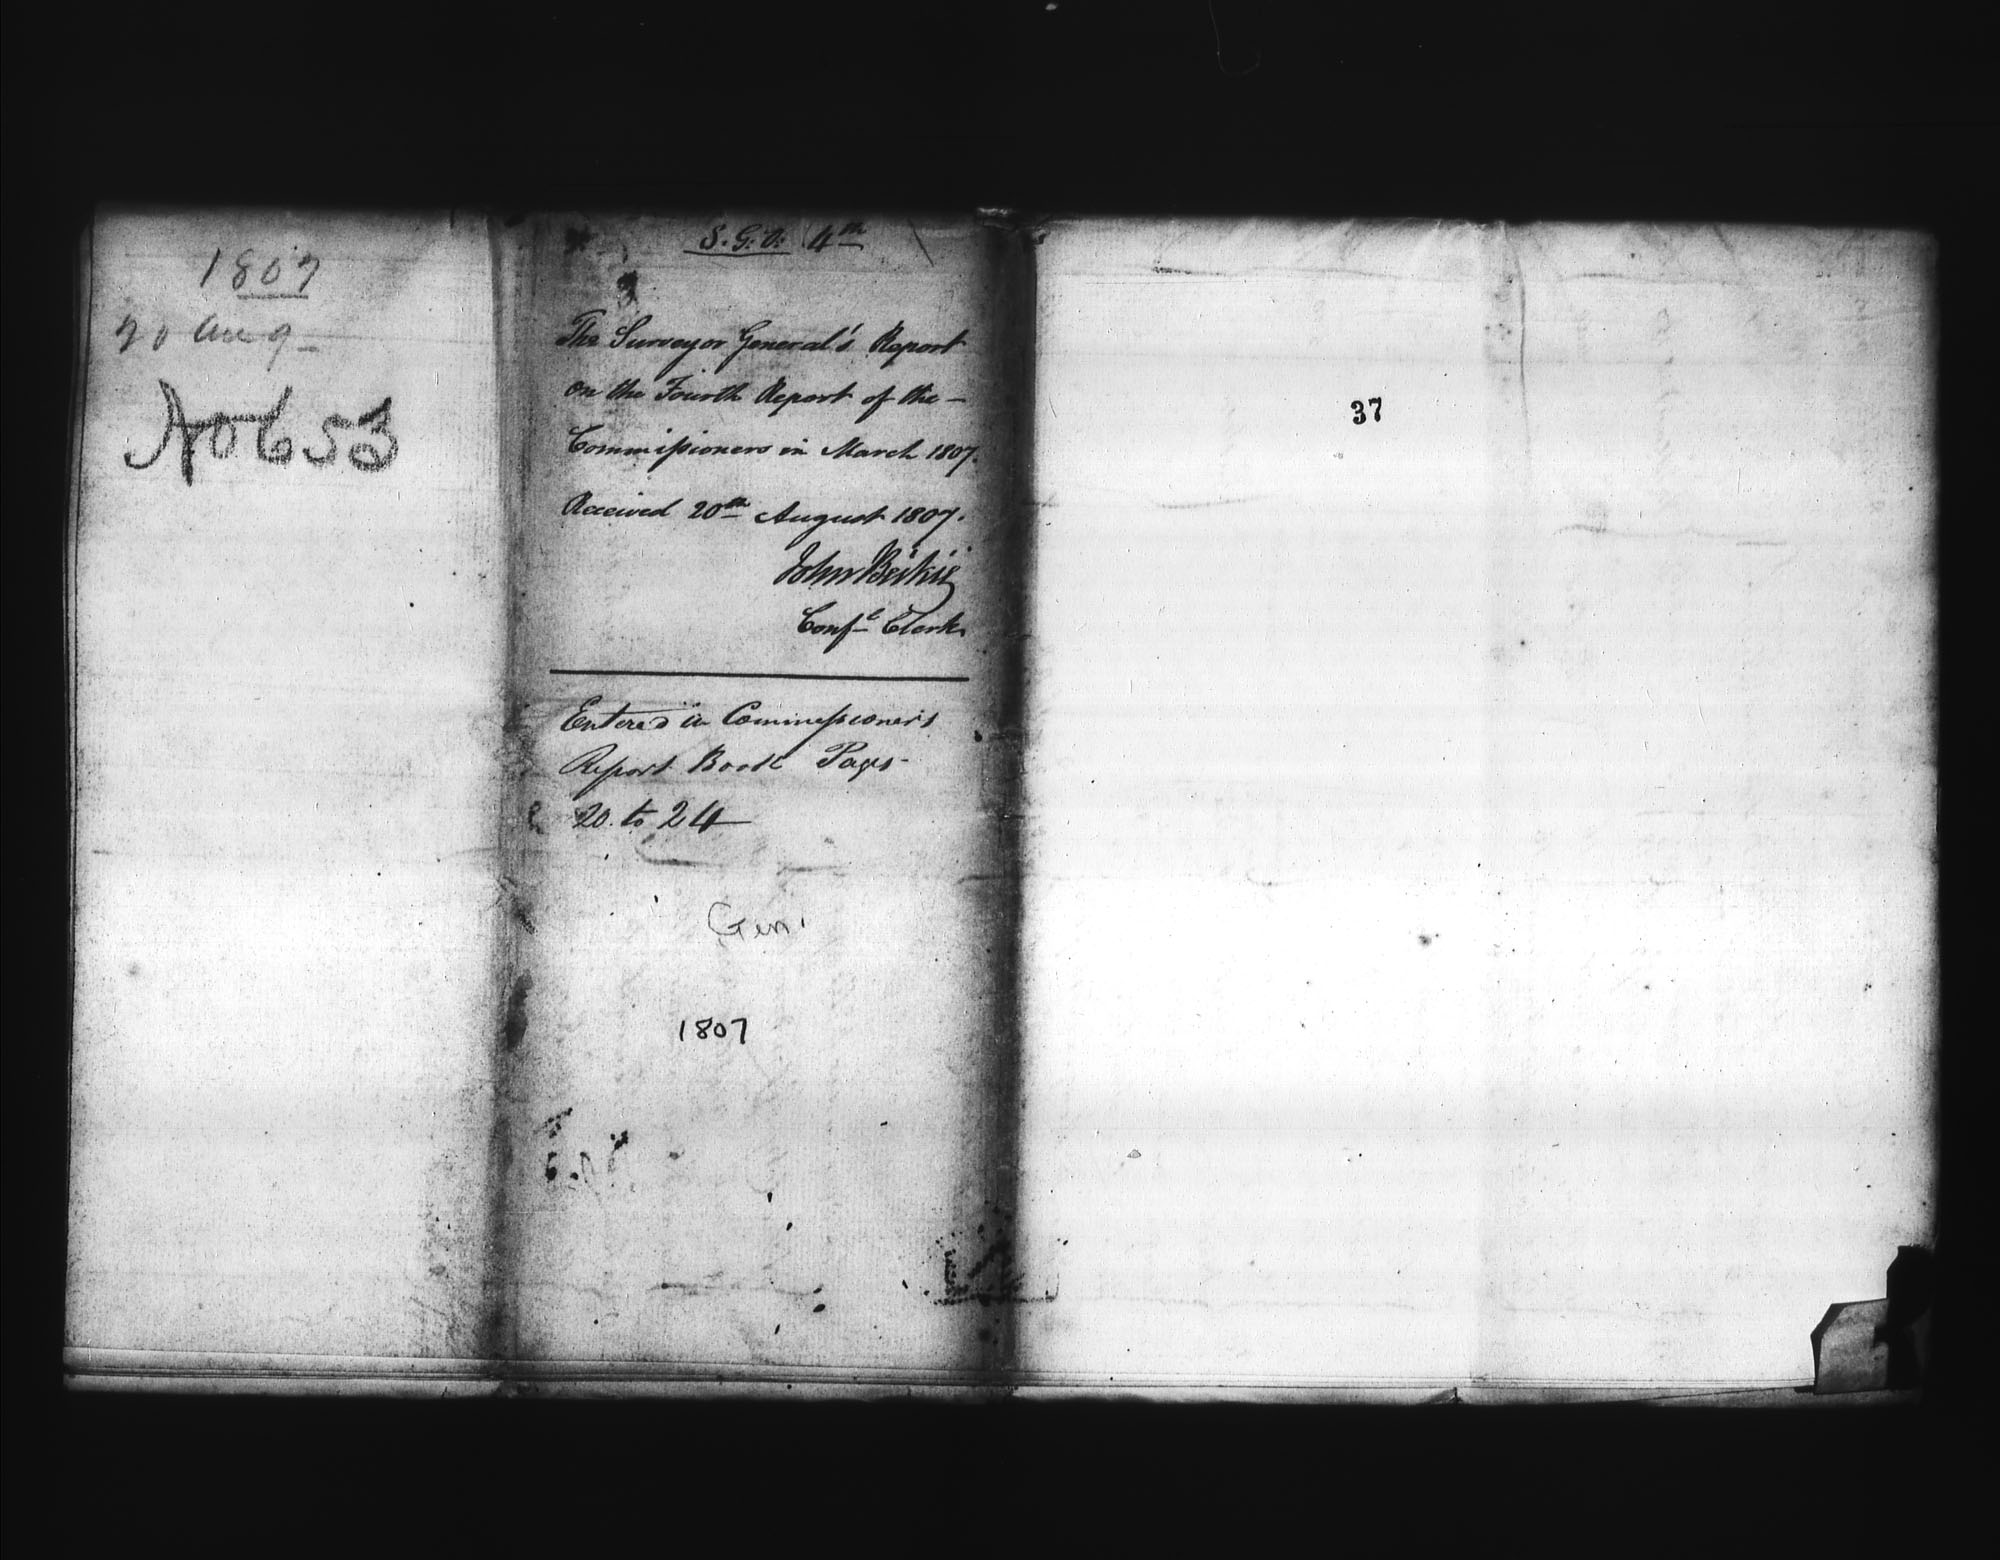 1807
20 Aug
A0653
S. G. O. 4th
The Surveyor General's Report
on the Fourth Report of the -
Commissioners in March 1807.
Received 20th August 1807.
John Beikie
Confl Clerk
Entered in Commissioners
Report Book Pages
20. to 24
Gen.
1807
37